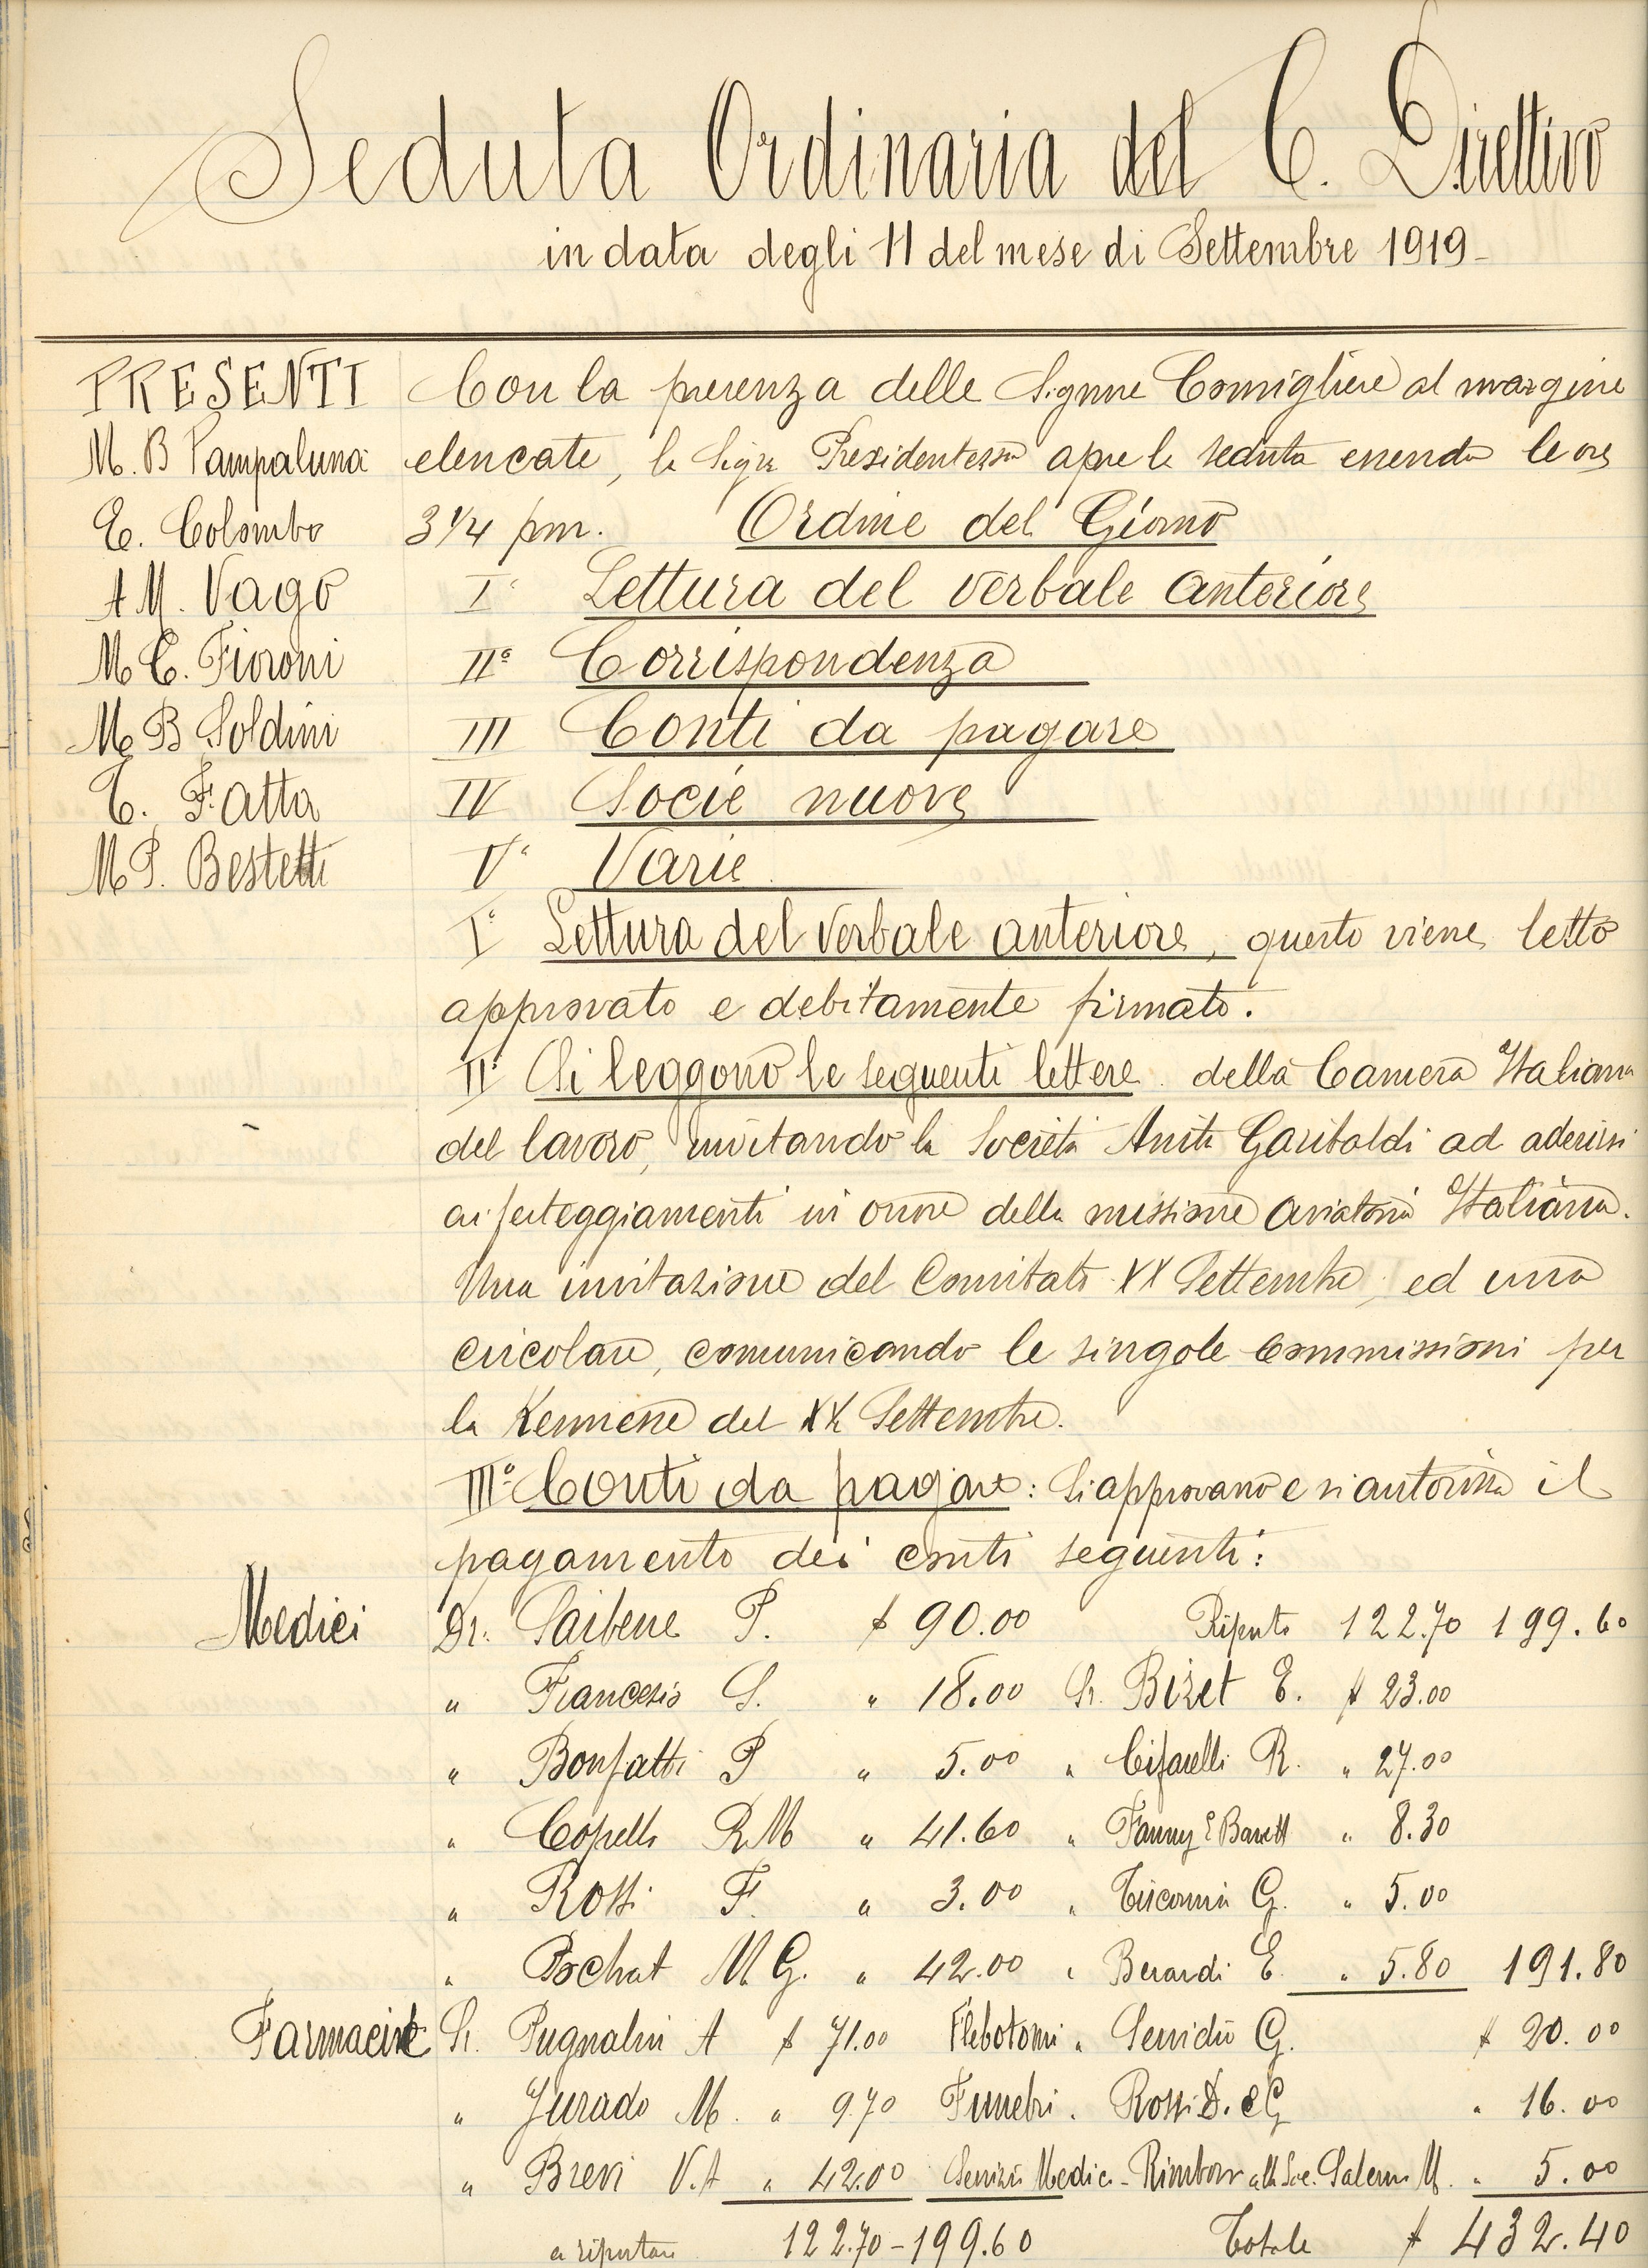 Seduta Ordinaria del C. Direttivo
in data degli 11 del mese di Settembre 1919-
PRESENTI
M. B Pampaluna
E. Colombo
A M. Vago
M C. Fioroni
M B Soldini
C. Fatta
M P. Bestetti
Con la presenza delle Signore Consigliere al margine
elencate, la Sigra Presidentessa apre la seduta essendo le ore
3 1/4 pm. Ordine del Giorno
I° Lettura del verbale anteriore
II° Corrispondenza
III Conti da pagare
IV Socie nuove
V° Varie
I° Lettura del verbale anteriore, questo viene letto
approvato e debitamente firmato.
II° Si leggono le seguenti lettere della Camera Italiana
del lavoro, invitando la Società Anita Garibaldi ad aderirsi
ai festeggiamenti in onore della missione aviatoria Italiana.
Una invitazione del Comitato XX Settembre, ed una
circolare, comunicando le singole commissioni per
la Kermesse del XX Settembre.
III° Conti da pagare: Si approvano e si autorizza il
pagamento dei conti seguenti:
Medici Dr. Saibene P. $ 90.00 Riporto 122.70 199.60
" Francesio S. " 18.00 Sr. Bizet E. $ 23.00
" Bonfatti P " 5.00 " Cifarelli R. " 27.00
" Copello R M " 41.60 " Fanny E Barett " 8.30
" Rossi F. " 3.00 " Tiscornia G. " 5.00
" Pochat M G. " 42.00 " Berardi E. " 5.80 191.80
Farmacisti Sr. Pugnalin A $ 71.00 Flebotomi " Servidio G. $ 20.00
" Jurado M. " 9.70 Funebri " Rossi D. e G " 16.00
" Brevi V. A " 42.00 Servizio Medici - Rimborso alla Soc. Salerno M. " 5.00
a riportare 122.70-199.60 Totale $ 432.40